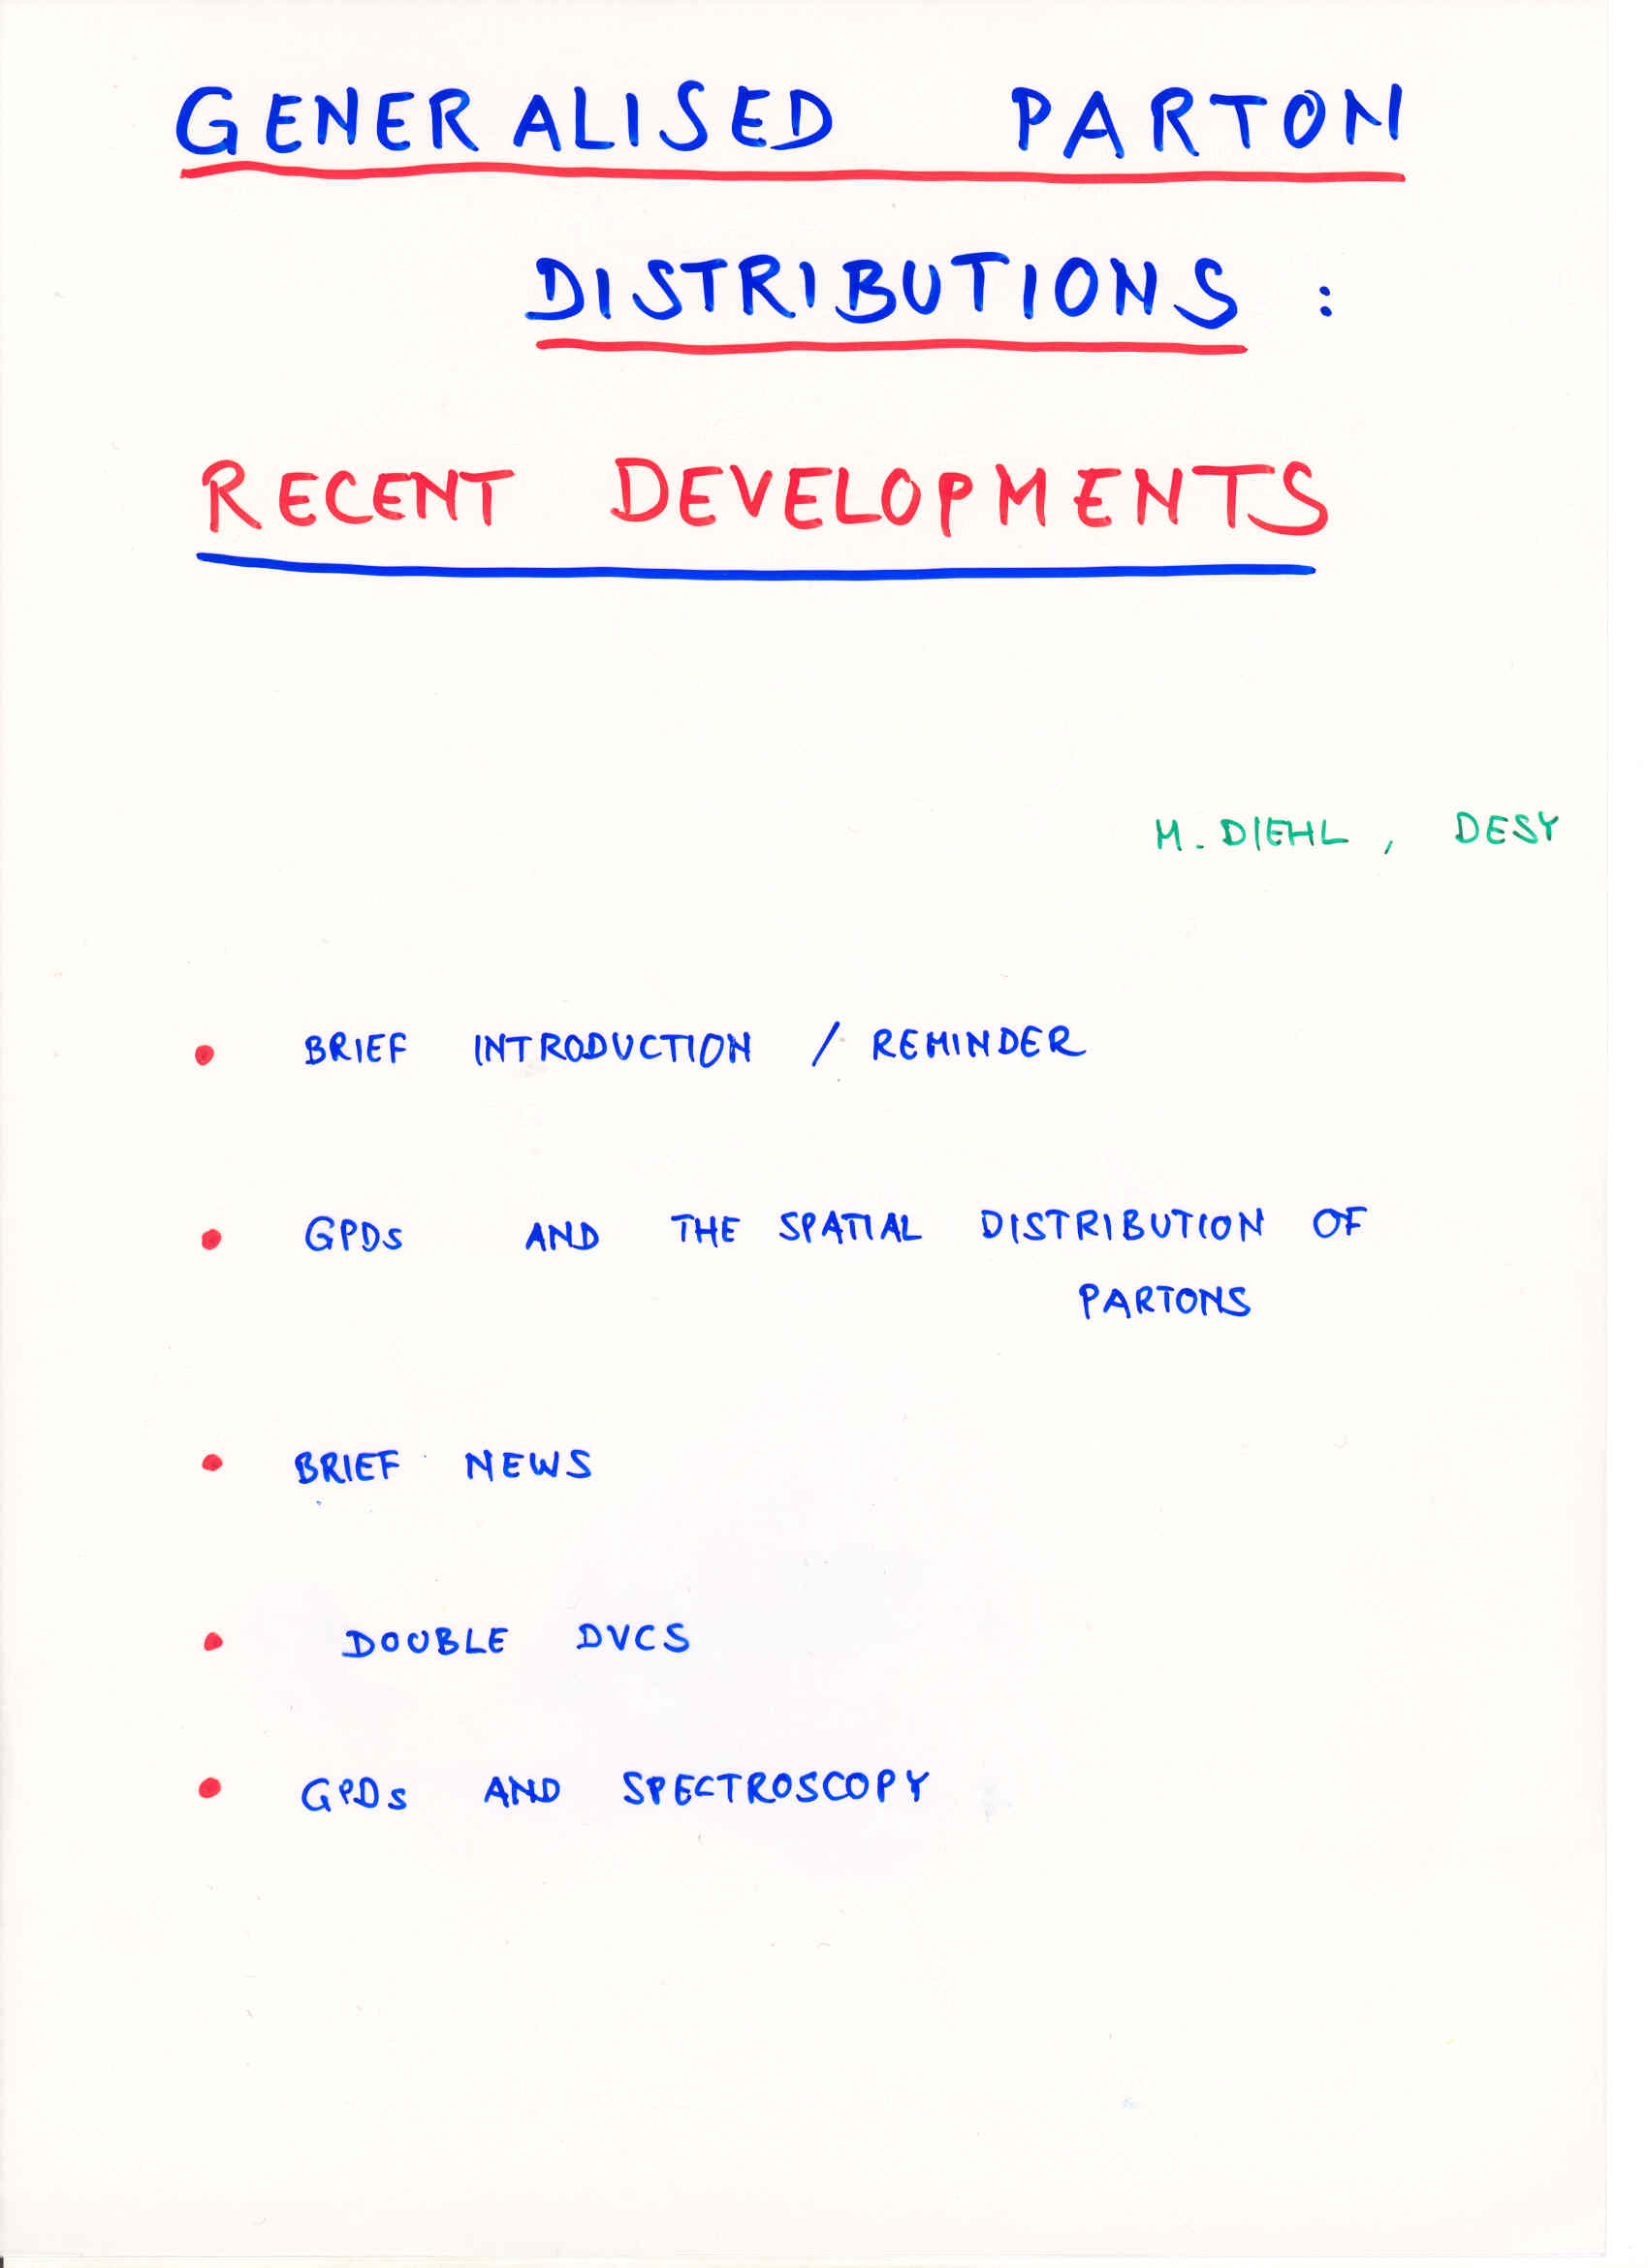 GENERALISED PARTON
DISTRIBUTIONS :
RECENT DEVELOPMENTS
M. DIEHL , DESY
• BRIEF INTRODUCTION / REMINDER
• GPDs AND THE SPATIAL DISTRIBUTION OF
PARTONS
• BRIEF NEWS
• DOUBLE DVCS
• GPDs AND SPECTROSCOPY